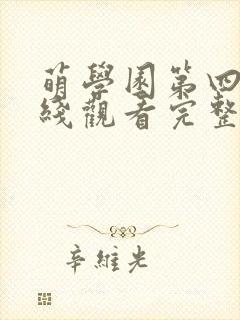 萌學園第四
綫觀看完整
辛維光